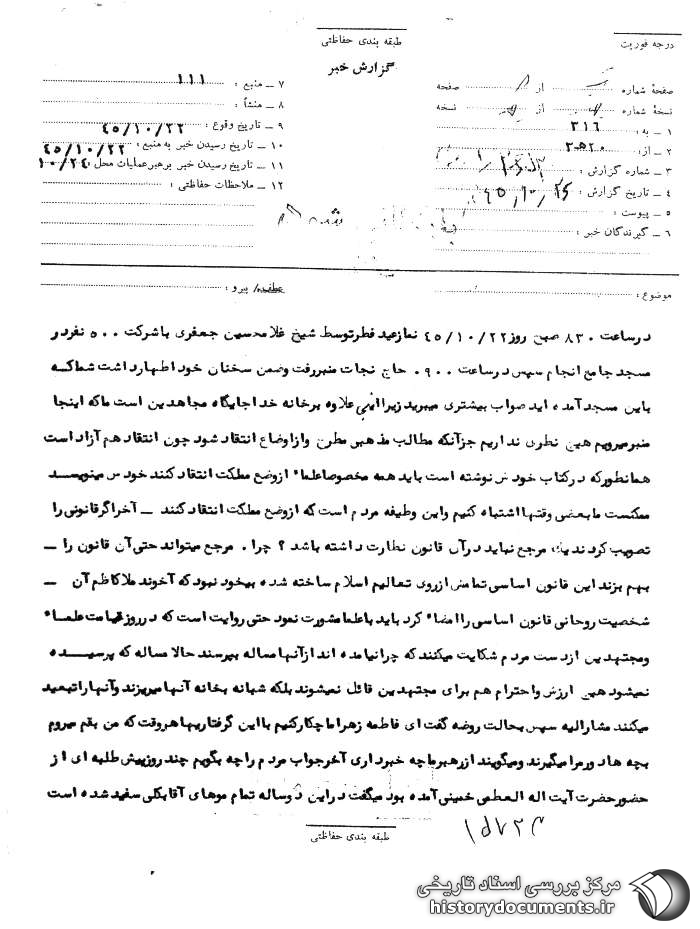 درجه فوریت
طبقه بندی حفاظتی
گزارش خبر
صفحهٔ شماره از صفحه
نسخهٔ شماره از نسخه
۱ ـ به : ۳۱۶
۲ ـ از : ۲۰ ه ۳
۳ ـ شماره گزارش :
۴ ـ تاریخ گزارش : ۴۵/۱۰/۲۵
۵ ـ پیوست :
۶ ـ گیرندگان خبر :
۷ ـ منبع : ۱۱۱
۸ ـ منشأ :
۹ ـ تاریخ وقوع : ۴۵/۱۰/۲۲
۱۰ ـ تاریخ رسیدن خبر به منبع : ۴۵/۱۰/۲۲
۱۱ ـ تاریخ رسیدن خبر برهبر عملیات محل : ۱۰/۲۴
۱۲ ـ ملاحظات حفاظتی :
موضوع :
عطف/ پیرو :
درساعت ۸۳۰ صبح روز ۴۵/۱۰/۲۲ نمازعید فطرتوسط شیخ غلامحسین جعفری باشرکت ۵۰۰ نفردر
مسجد جامع انجام سپس درساعت ۹۰۰ حاج نجات منبررفت وضمن سخنان خود اظهارداشت شماکه
باین مسجد آمده اید صواب بیشتری میبرید زیرا علاوه برخانه خدا جایگاه مجاهدین است ماکه اینجا
منبرمیرویم هیچ نظری نداریم جزآنکه مطالب مذهبی مطرح وازاوضاع انتقاد شود چون انتقاد هم آزاد است
همانطورکه درکتاب خودش نوشته است باید همه مخصوصاعلماء ازوضع مملکت انتقاد کنند خودش مینویسد
ممکنست مابعضی وقتها اشتباه کنیم واین وظیفه مردم است که ازوضع مملکت انتقاد کنند ـ آخراگرقانونی را
تصویب کردند یک مرجع نباید درآن قانون نظارت داشته باشد ؟ چرا . مرجع میتواند حتی آن قانون را ـ
بهم بزند این قانون اساسی تمامش ازروی تعالیم اسلام ساخته شده بیخود نبود که آخوند ملاکاظم آن ـ
شخصیت روحانی قانون اساسی راامضاء کرد باید باعلما مشورت نمود حتی روایت است که درروز قیامت علماء
ومجتهدین ازدست مردم شکایت میکنند که چرانیامده اند ازآنها مساله بپرسند حالا مساله که پرسیده
نمیشود هیچ ارزش واحترام هم برای مجتهدین قائل نمیشوند بلکه شبانه بخانه آنها میریزند وآنهاراتبعید
میکنند مشارالیه سپس بحالت روضه گفت ای فاطمه زهرا ماچکارکنیم بااین گرفتاریها هروقت که من بقم میروم
بچه ها دورمرا میگیرند ومیگویند ازرهبرماچه خبرداری آخرجواب مردم راچه بگویم چند روزپیش طلبه ای از
حضورحضرت آیت اله العظمی خمینی آمده بود میگفت دراین دوساله تمام موهای آقابکلی سفید شده است
طبقه بندی حفاظتی
مرکز بررسی اسناد تاریخی
historydocuments.ir